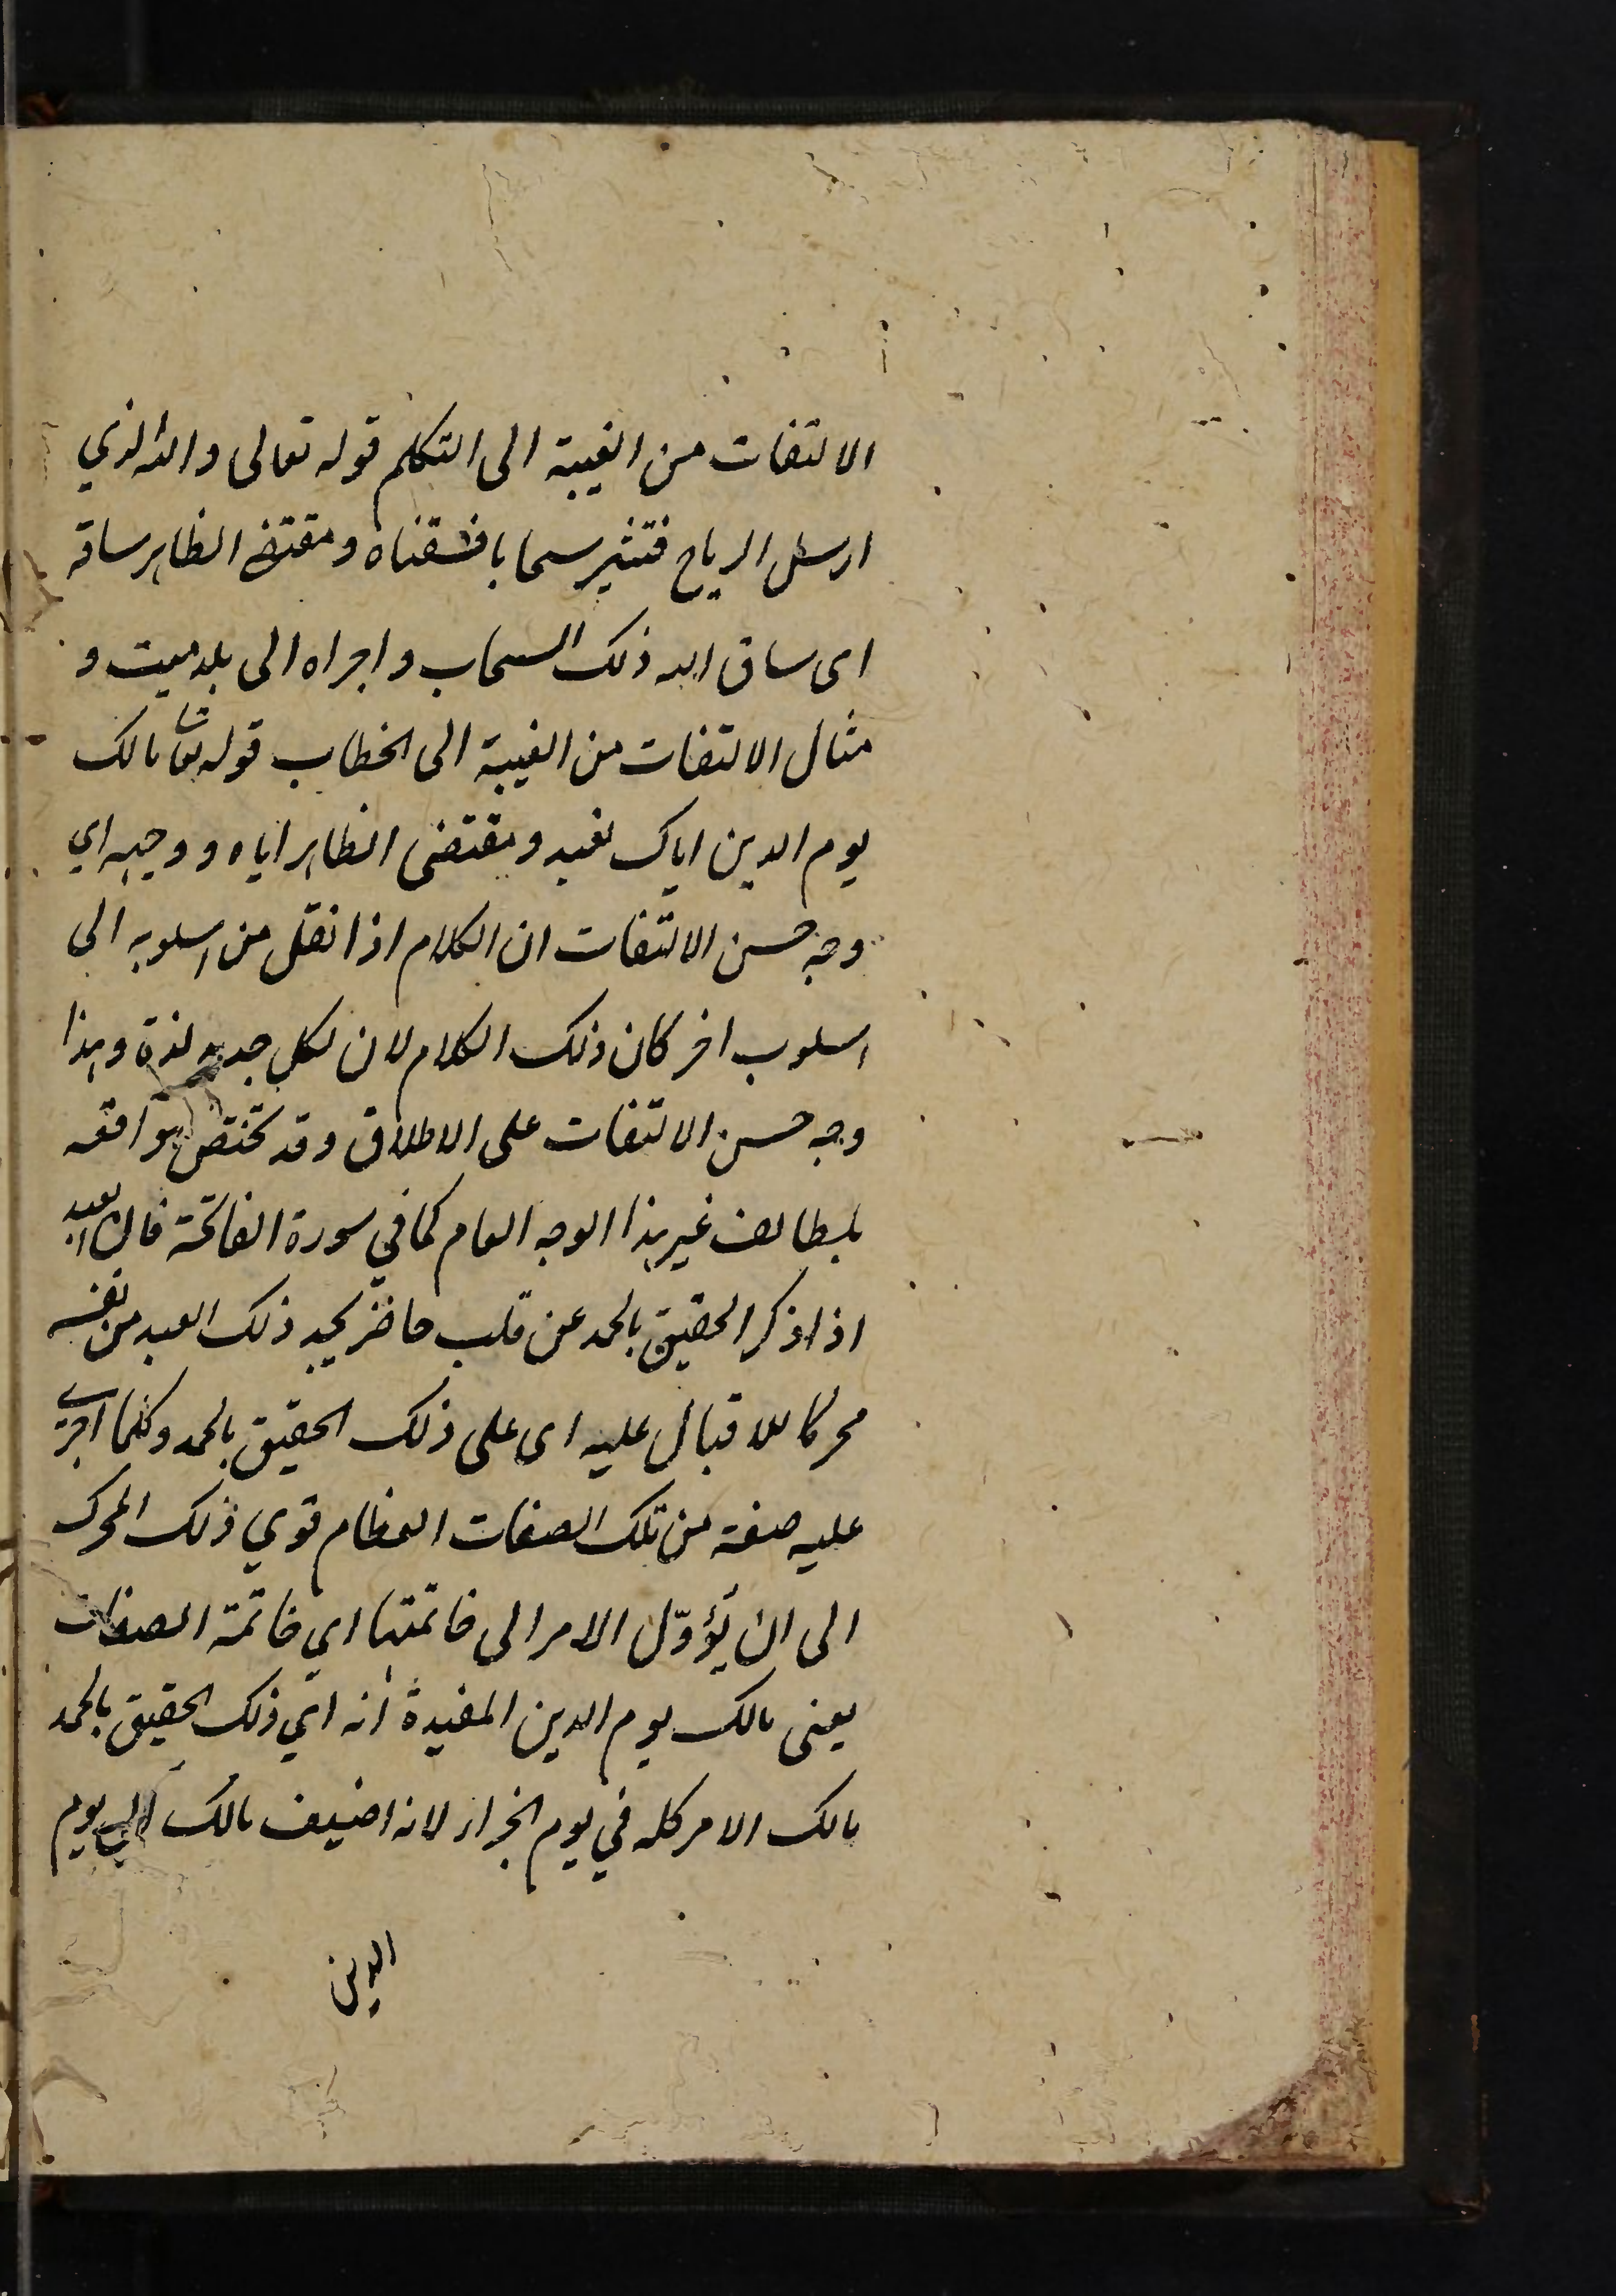 الالتفات من الغيبة الى التكلم قوله تعالى والله الذي
ارسل الرياح فتثير سحابا فسقناه ومقتضى الظاهر ساقه
اى ساق الله ذلك السحاب واجراه الى بلد ميت و
مثال الالتفات من الغيبة الى الخطاب قوله تعا مالك
يوم الدين اياك نعبد ومقتضى الظاهر اياه ووجهه اي
وجه حسن الالتفات ان الكلام اذا نقل من اسلوبه الى
اسلوب اخر كان ذلك الكلام لان لكل جديد لذة وهذا
وجه حسن الالتفات على الاطلاق وقد تختص مواقعه
بلطائف غير هذا الوجه العام كما في سورة الفاتحة فان العبد
اذا ذكر الحقيق بالحمد عن قلب حاضر يجد ذلك العبد من نفسه
محركا للاقبال عليه اى على ذلك الحقيق بالحمد وكلما اجرى
عليه صفة من تلك الصفات العظام قوي ذلك المحرك
الى ان يؤول الامر الى خاتمتها اي خاتمة الصفات
يعنى مالك يوم الدين المفيدة انه اي ذلك الحقيق بالحمد
مالك الامر كله في يوم الجزاء لانه اضيف مالك الى يوم
الدين